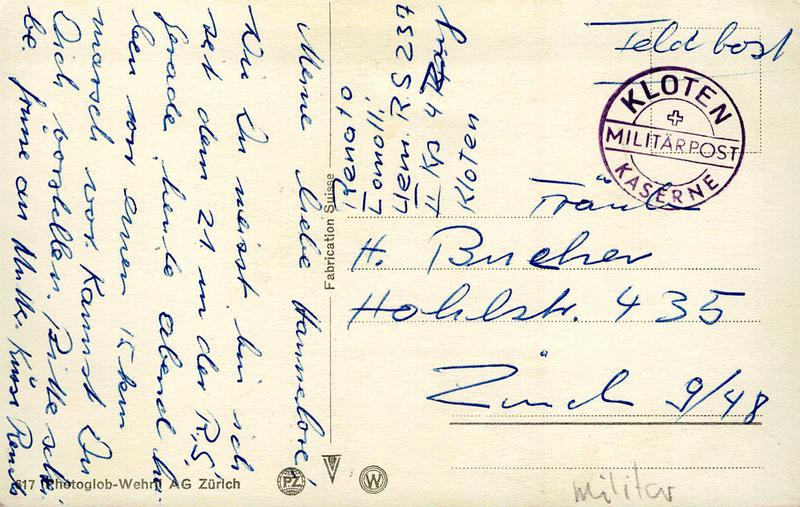 Meine liebe Hannelore!
Wie Du weisst bin ich
seit dem 21 in der R.S.
Gerade heute abend ha-
ben wir einen 15 km
marsch vor. Kannst Du
Dich vorstellen. Bitte schrei-
be. Grüsse an Mutti. Küsse Renato
Renato
Tomolli
Uem. R.S 237
II Kp 4
Kloten
Fabrication Suisse
Feldpost
KLOTEN
MILITÄRPOST
KASERNE
Fräulein
H. Bucher
Hohlstr. 435
Zürich 9/48
617 Photoglob-Wehrli AG Zürich
PZ
W
militär